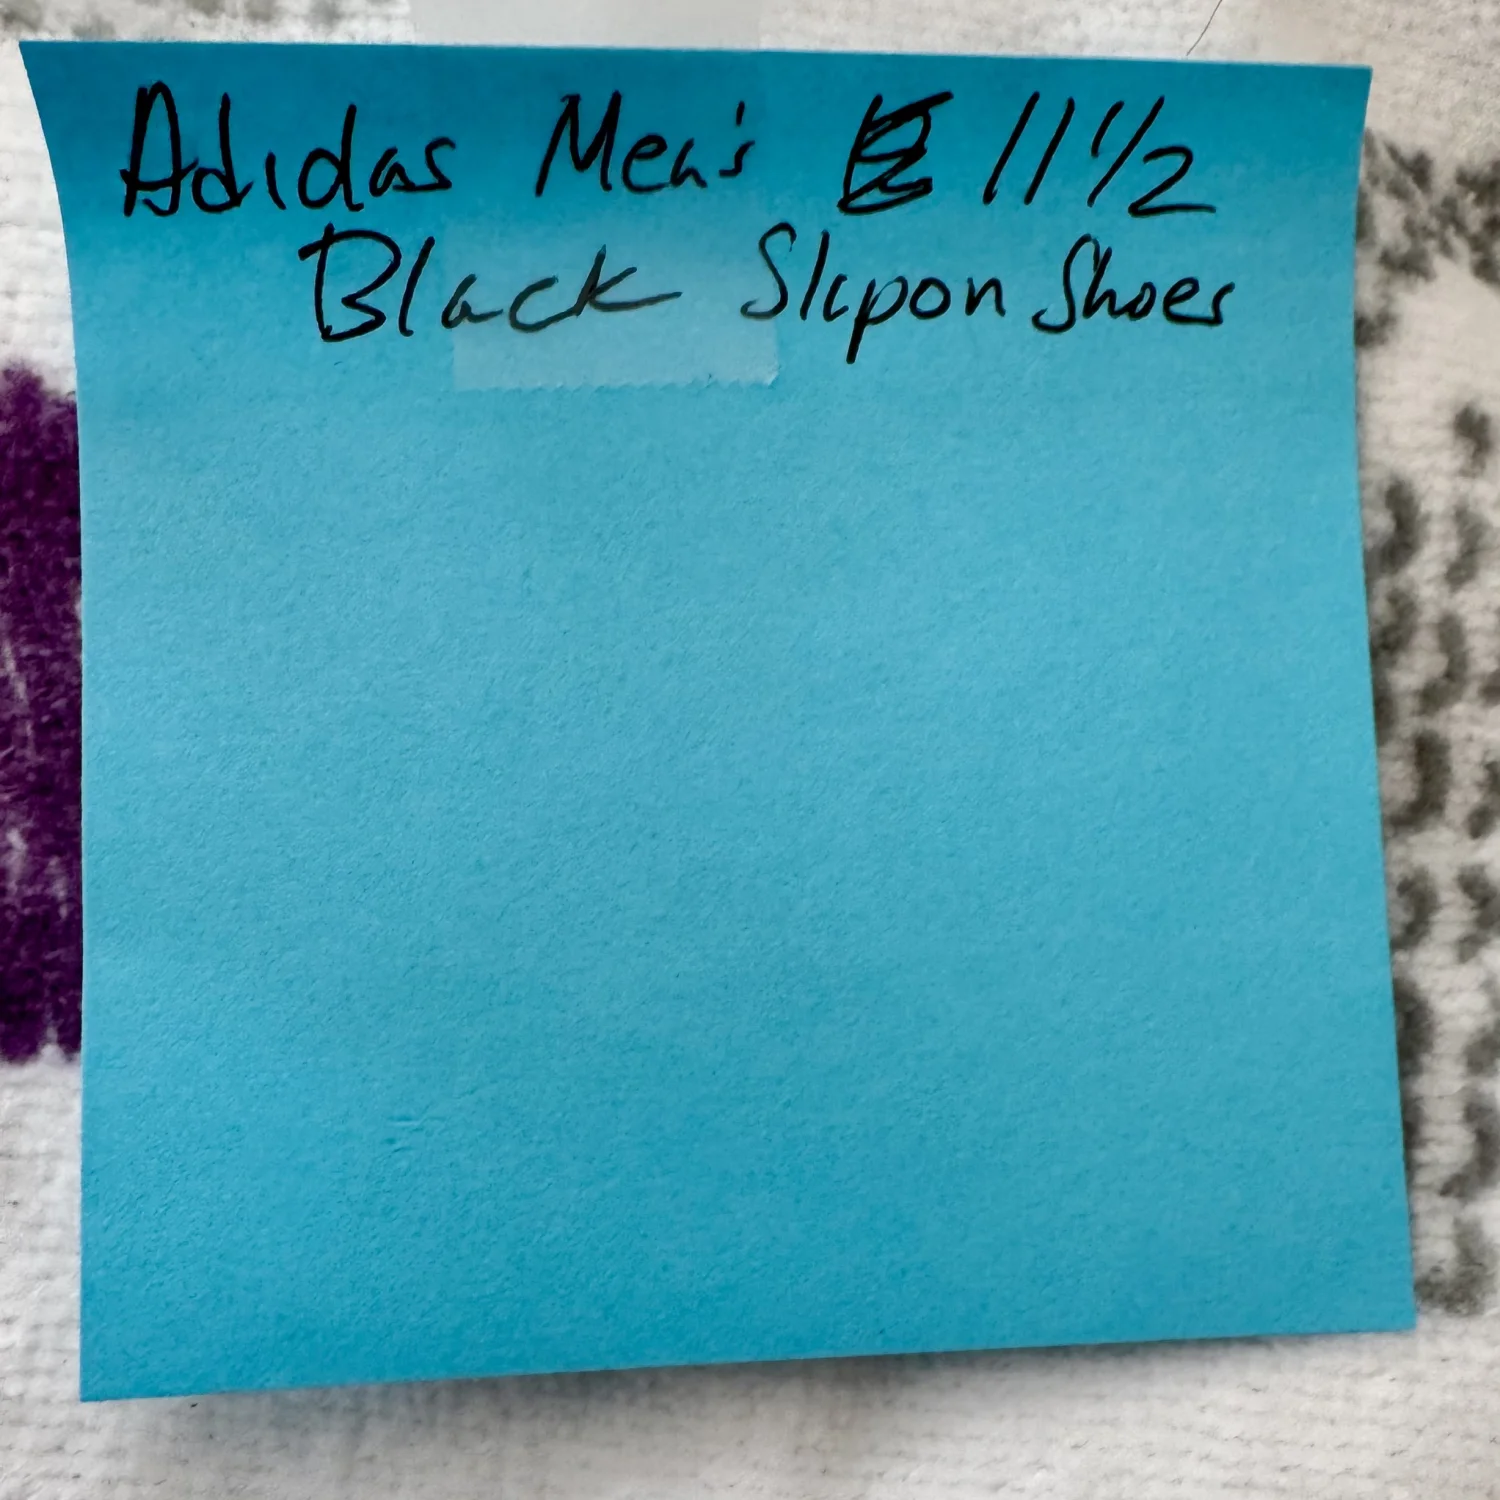 Adidas Men's 11 1/2
Black Slipon Shoes